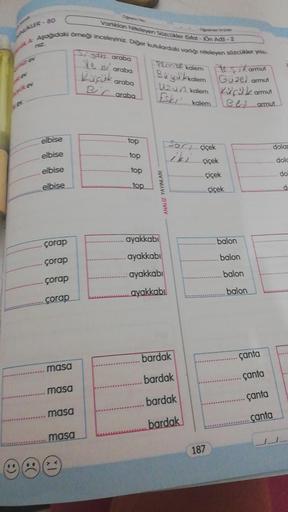 Varlıkları Niteleyen Sözcükler (Sıfat - Ön Ad)) - 2
Aşağıdaki örneği inceleyiniz. Diğer kutulardaki varlığı niteleyen sözcükler
ev
araba
kalem
armut
ev
araba
Büyük kalem
Güzel armut
Küçük araba
Uzun kalem
Küçük armut
ev
Bir araba
Eski kalem
armut
elbise
top
Sarı çiçek
elbise
top
İki çiçek
elbise
top
çiçek
elbise
top
çiçek
YAYINLARI
çorap
ayakkabı
balon
çorap
ayakkabı
balon
çorap
ayakkabı
balon
çorap
ayakkabı
balon
masa
bardak
çanta
masa
bardak
çanta
masa
bardak
çanta
masa
bardak
çanta
187